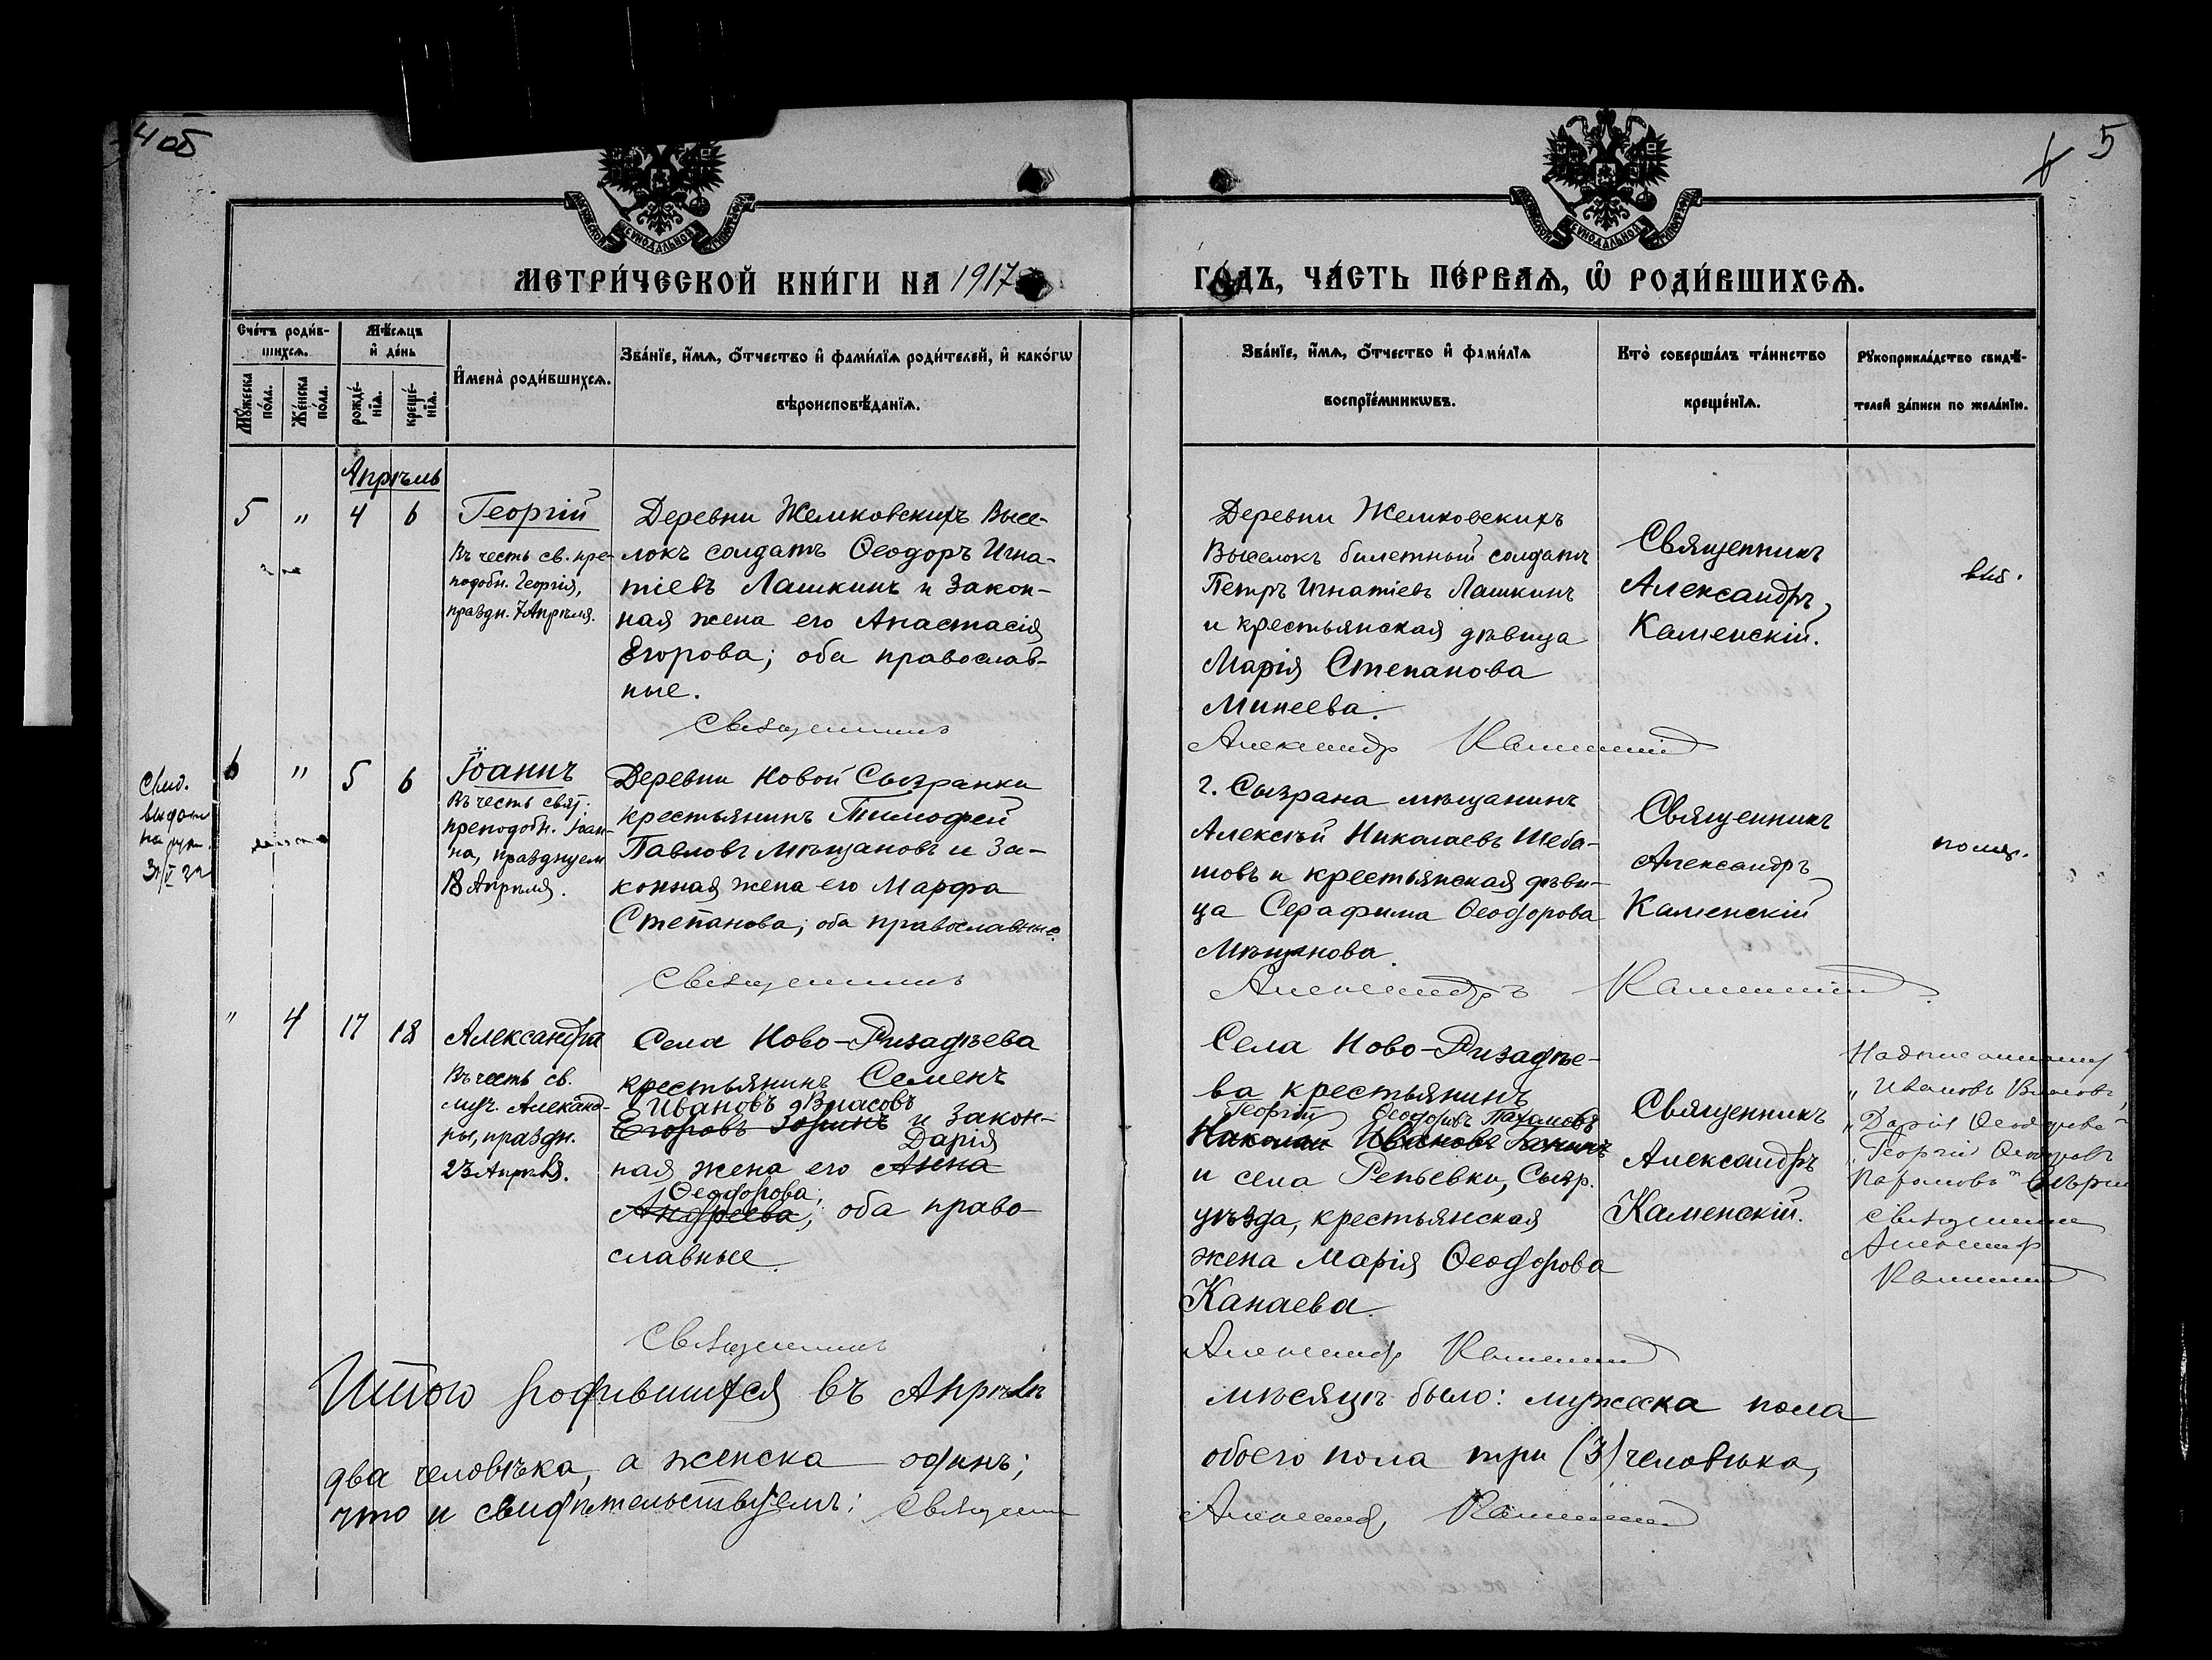 4 об
5
МЕТРИ́ЧЕСКОЙ КНИ́ГИ НА 1917
ГО́ДЪ, ЧА́СТЬ ПЕ́РВАѦ, Ѡ҆ РОДИ́ВШИХСѦ.
Сче́тъ роди́в-
шихсѧ.
Мꙋ́жеска
по́ла.
Же́нска
по́ла.
Мѣ́сѧцъ
и҆ де́нь
рожде́-
нїѧ.
креще́-
нїѧ.
И҆мена̀ роди́вшихсѧ.
Зва́нїе, и҆́мѧ, ѻ҆́тчество и҆ фами́лїѧ роди́телей, и҆ како́гѡ
вѣроисповѣ́данїѧ.
Зва́нїе, и҆́мѧ, ѻ҆́тчество и҆ фами́лїѧ
воспрїе́мникѡвъ.
Кто̀ соверша́лъ та́инство
креще́нїѧ.
Рꙋкоприкла́дство свидѣ́-
телей за́писи по жела́нїю.
Апрѣль
5 " 4 6
Георгій
Въ честь св. пре-
подобн. Георгія,
праздн. 7 Апрѣля.
Деревни Жемковскихъ Высе-
локъ солдатъ Ѳеодоръ Игна-
тіевъ Лашкинъ и закон-
ная жена его Анастасія
Егорова; оба православ-
ные.
Деревни Жемковскихъ
Выселокъ билетный солдатъ
Петръ Игнатіевъ Лашкинъ
и крестьянская дѣвица
Марія Степанова
Минеева.
Священникъ
Александръ
Каменскій.
Священникъ
Александръ Каменскій
6 " 5 6
Іоаннъ
Въ честь свят.
преподобн. Іоан-
на, празднуем.
18 Апрѣля.
Деревни Новой Сызранки
крестьянинъ Тимофей
Павловъ Мѣщановъ и за-
конная жена его Марфа
Степанова; оба православные.
г. Сызрана мѣщанинъ
Алексѣй Николаевъ Шеба-
шовъ и крестьянская дѣви-
ца Серафима Ѳеодорова
Мѣщанова.
Священникъ
Александръ
Каменскій
Священникъ
Александръ Каменскій
" 4 17 18
Александра
Въ честь св.
муч. Александ-
ры, праздн.
23 Апрѣля.
Села Ново-Ризадѣева
крестьянинъ Семенъ
Ивановъ Власовъ
Егоровъ Зоринъ и закон-
Дарія
ная жена его Анна
Ѳеодорова;
Андреева, оба право-
славные
Села Ново-Ризадѣе-
ва крестьянинъ
Георгій Ѳеодоровъ
Николай Ивановъ
и села Репьевки, Сызр.
уѣзда, крестьянская
жена Марія Ѳеодорова
Канаева.
Священникъ
Александръ
Каменскій.
"Ивановъ Власовъ",
"Дарія Ѳеодорова"
"Георгій Ѳеодоровъ
священникъ
Александръ
Каменскій
Священникъ
Александръ Каменскій
Итого родившихся въ Апрѣлѣ
мѣсяцѣ было: мужеска пола
два человѣка, а женска одинъ;
обоего пола три (3) человѣка,
что и свидѣтельствуемъ: Священникъ
Александръ Каменскій